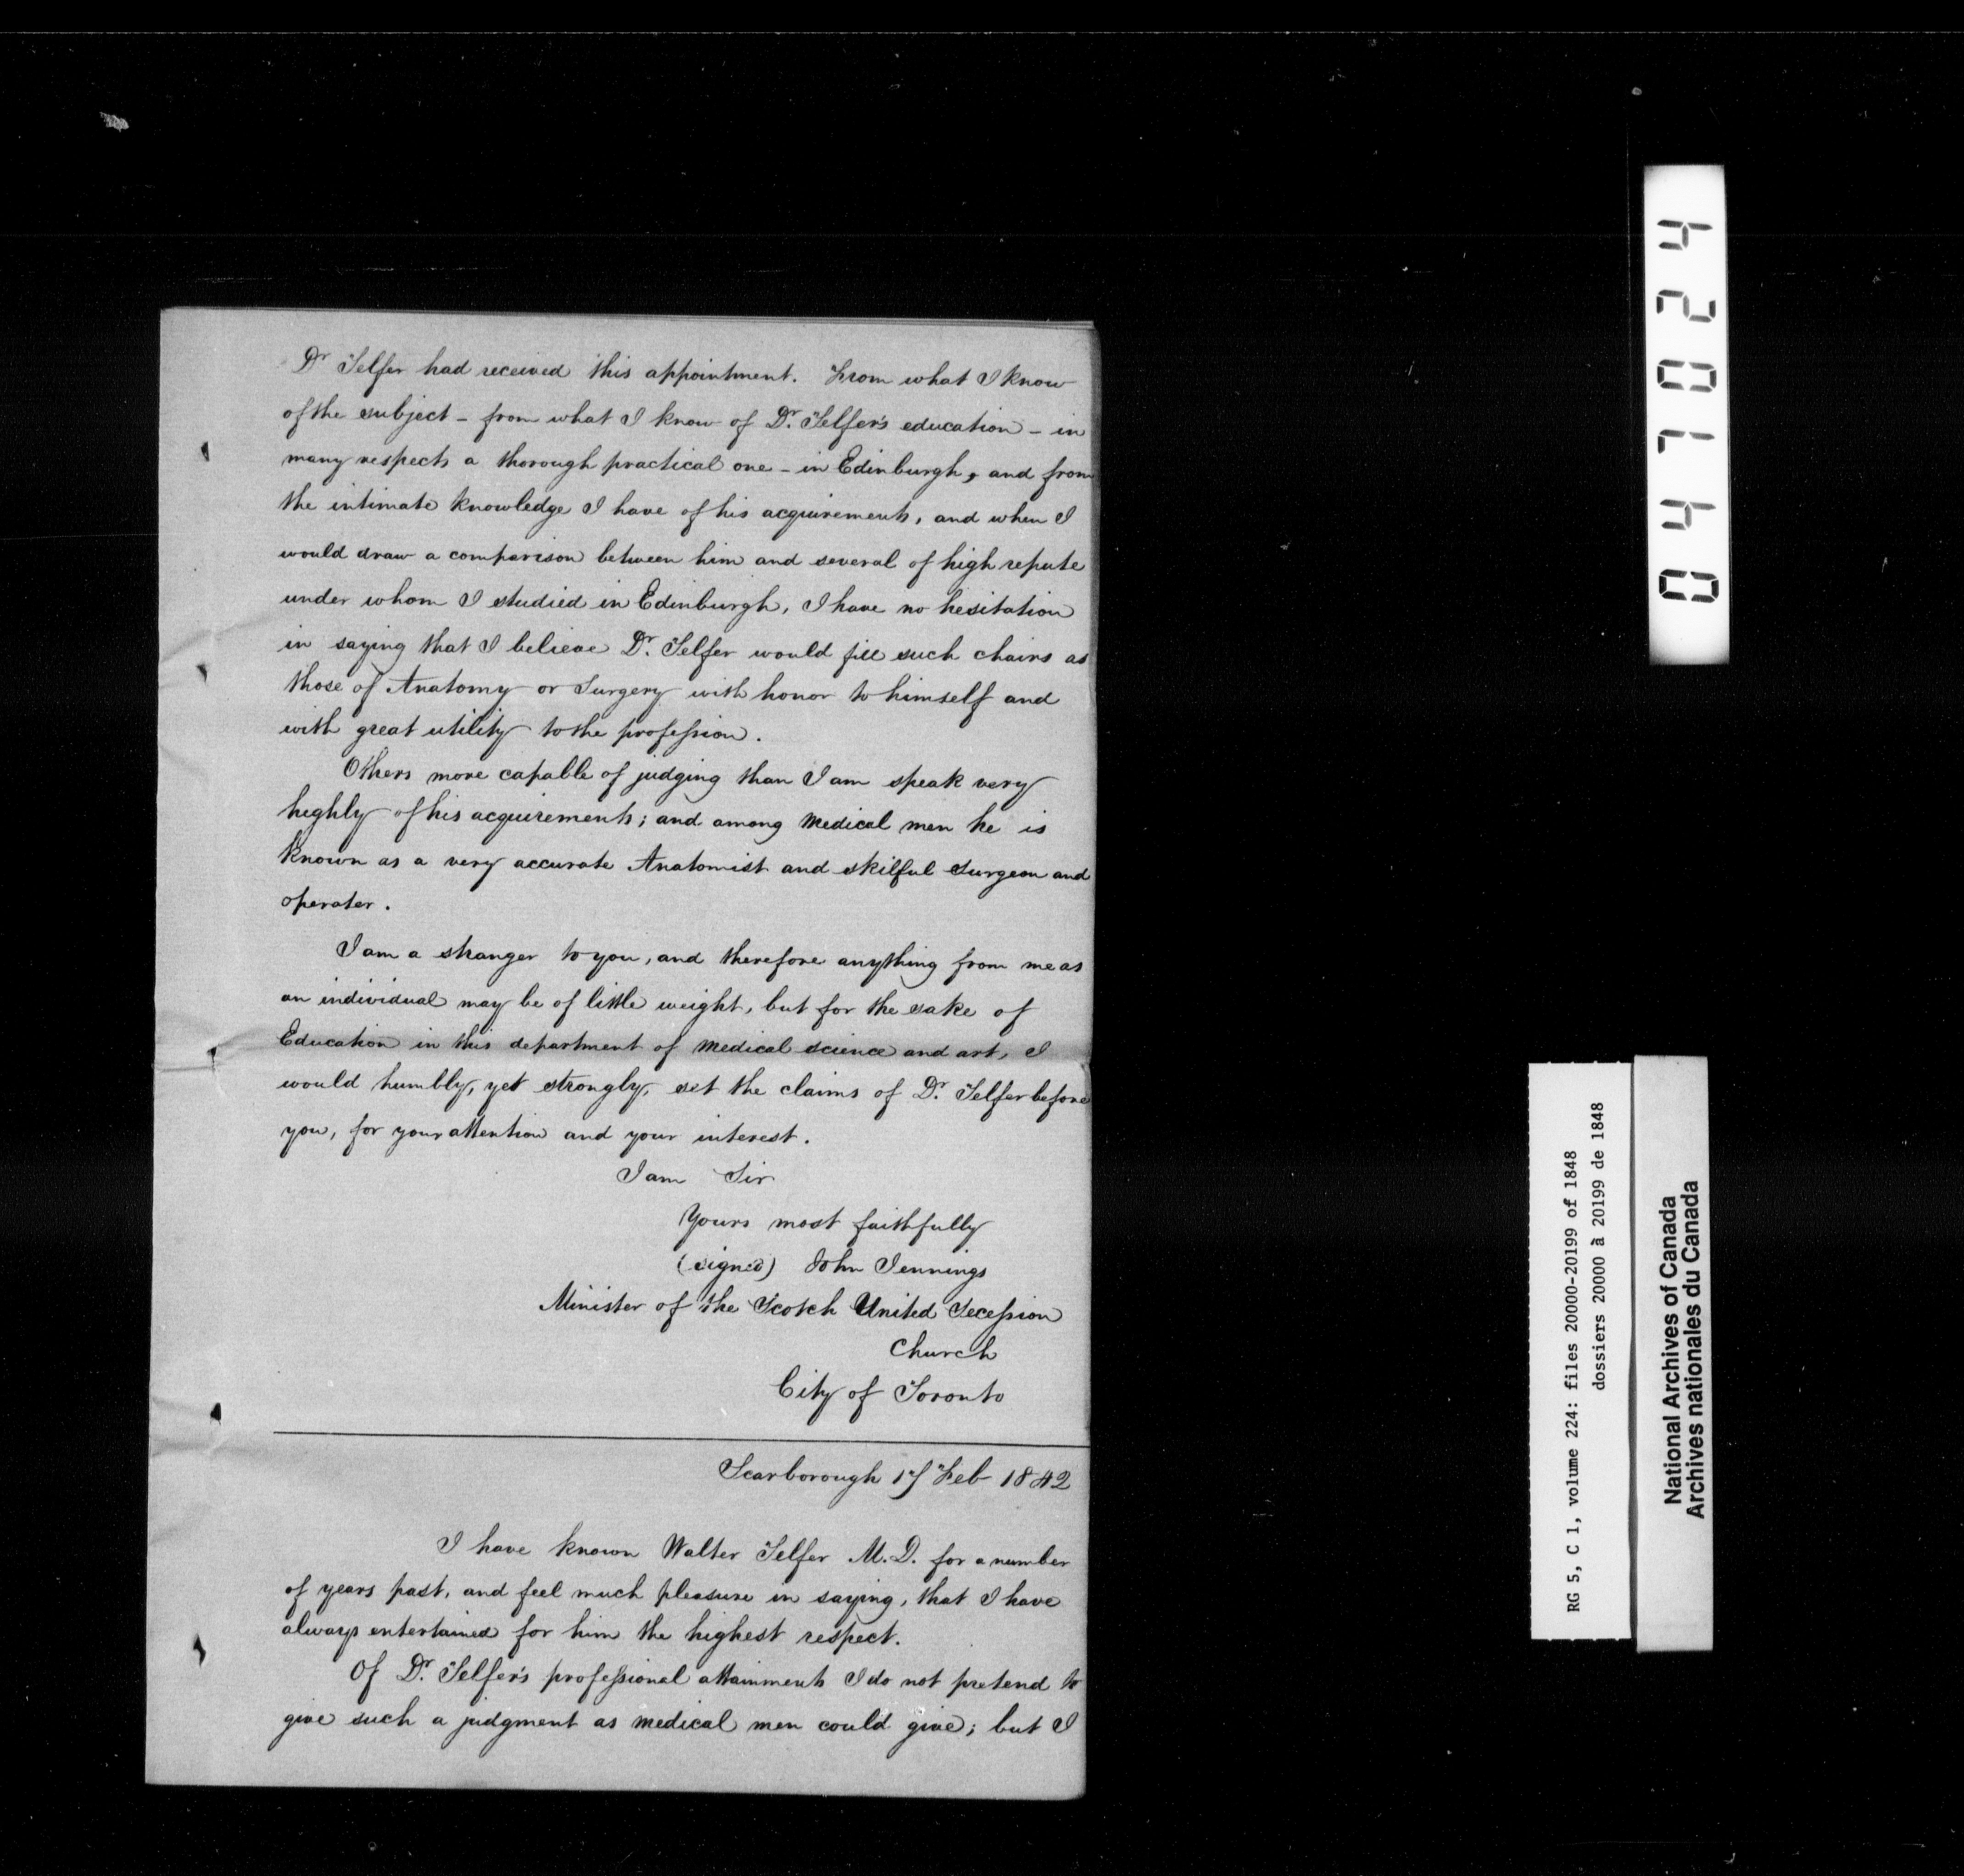 Dr Telfer had received this appointment. From what I know
of the subject - from what I know of Dr. Telfer's education - in
many respects a thorough practical one - in Edinburgh, and from
the intimate knowledge I have of his acquirements, and when I
would draw a comparison between him and several of high repute
under whom I studied in Edinburgh, I have no hesitation
in saying that I believe Dr. Telfer would fill such chairs as
those of Anatomy or Surgery with honor to himself and
with great utility to the profession.
Others more capable of judging than I am speak very
highly of his acquirements; and among medical men he is
known as a very accurate Anatomist and skilful surgeon and
operater.
I am a stranger to you, and therefore anything from me as
an individual may be of little weight, but for the sake of
Education in this department of medical science and art, I
would humbly, yet strongly, set the claims of Dr. Telfer before
you, for your attention and your interest.
I am Sir
Yours most faithfully
(signed) John Jennings
Minister of the Scotch United Secession
Church
City of Toronto
Scarborough 17 Feb 1842
I have known Walter Telfer M.D. for a number
of years past, and feel much pleasure in saying, that I have
always entertained for him the highest respect.
Of Dr. Telfer's professional attainments I do not pretend to
give such a judgment as medical men could give; but I
047024
RG 5, C 1, volume 224: files 20000-20199 of 1848
dossiers 20000 à 20199 de 1848
National Archives of Canada
Archives nationales du Canada